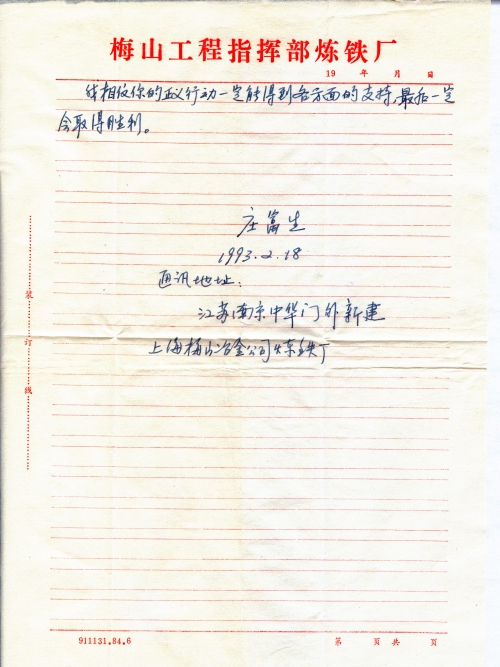 梅山工程指挥部炼铁厂
19 年 月 日
我相信你的正义行动一定能得到各方面的支持,最后一定
会取得胜利。
庄富生
1993.2.18
通讯地址:
江苏南京中华门外新建
上海梅山冶金公司炼铁厂
装订线
911131.84.6
第 页共 页